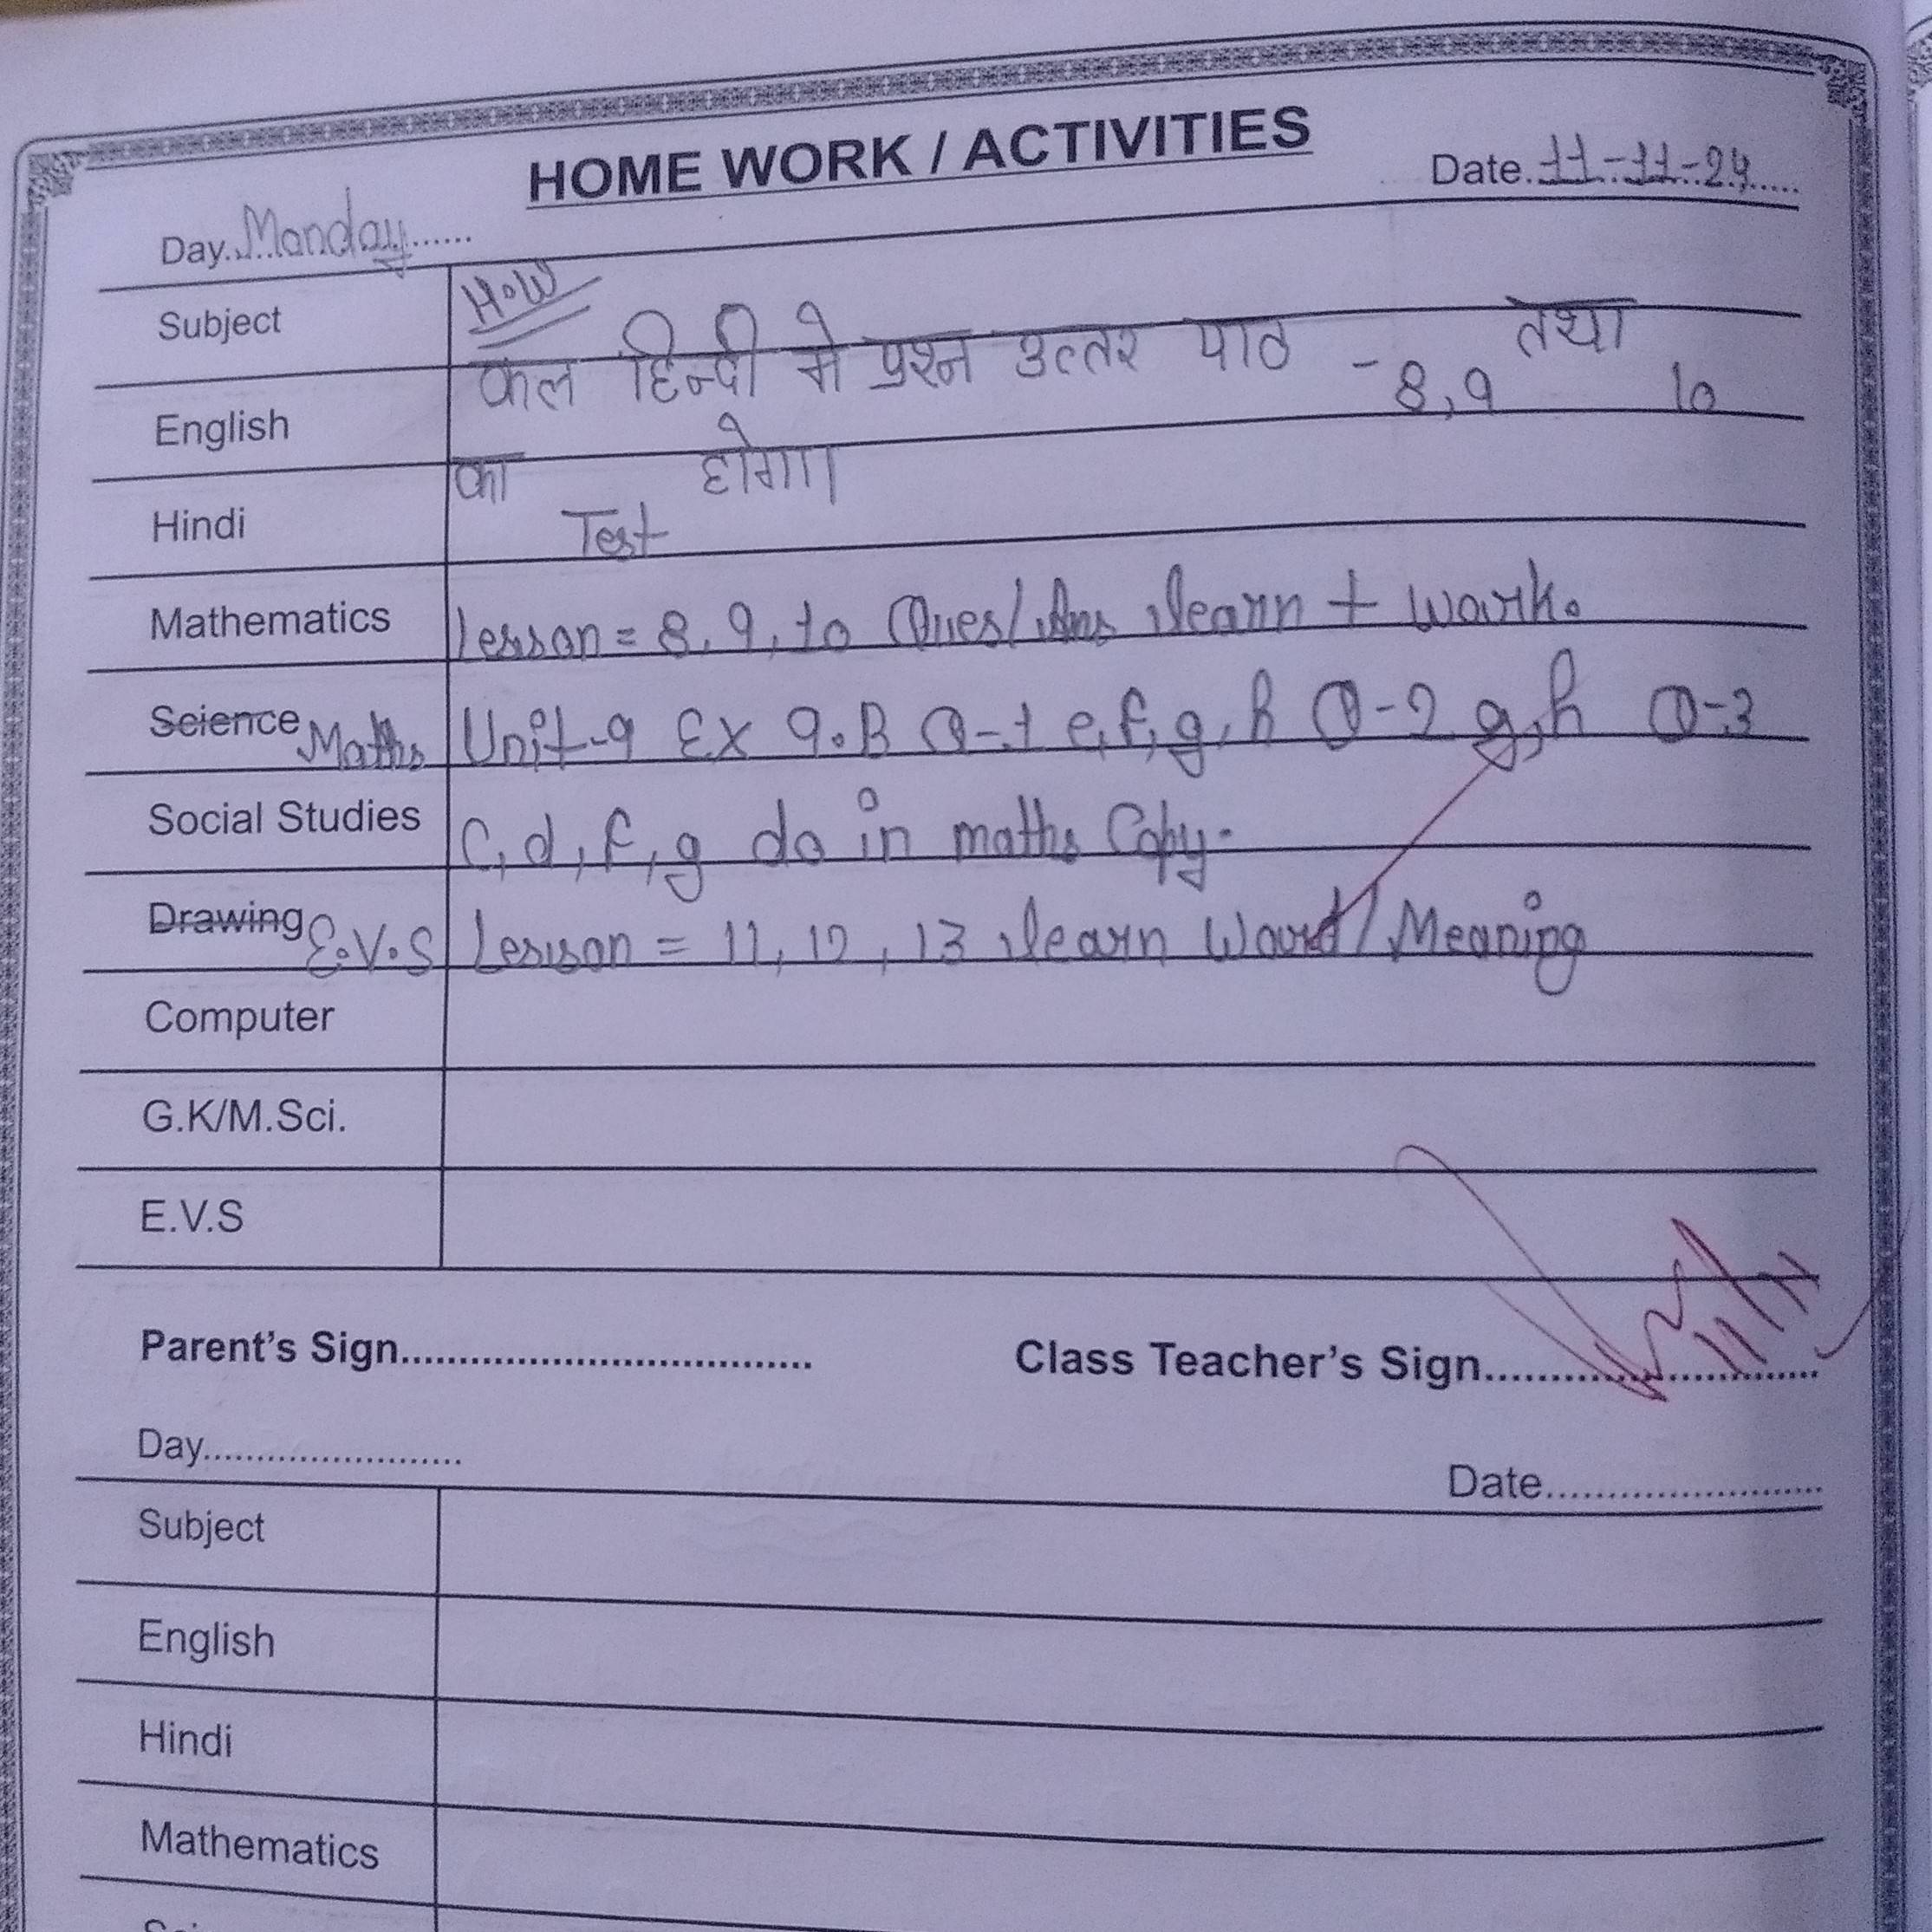 HOME WORK / ACTIVITIES
Day. Monday...... Date. 11-11-24.....
H.W
Subject
कल हिन्दी मे प्रश्न उत्तर पाठ - 8,9 तथा 10
English
का Test होगा।
Hindi
Mathematics Lesson = 8, 9, 10 Ques/Ans learn + work.
Science Maths Unit-9 Ex 9.B Q-1 e, f, g, h Q-2 g, h Q-3
Social Studies C, d, f, g do in maths Copy.
Drawing E.V.S Lesson = 11, 12, 13 learn Word/Meaning
Computer
G.K/M.Sci.
E.V.S
Parent's Sign................................... Class Teacher's Sign............................
11/11
Day........................ Date........................
Subject
English
Hindi
Mathematics